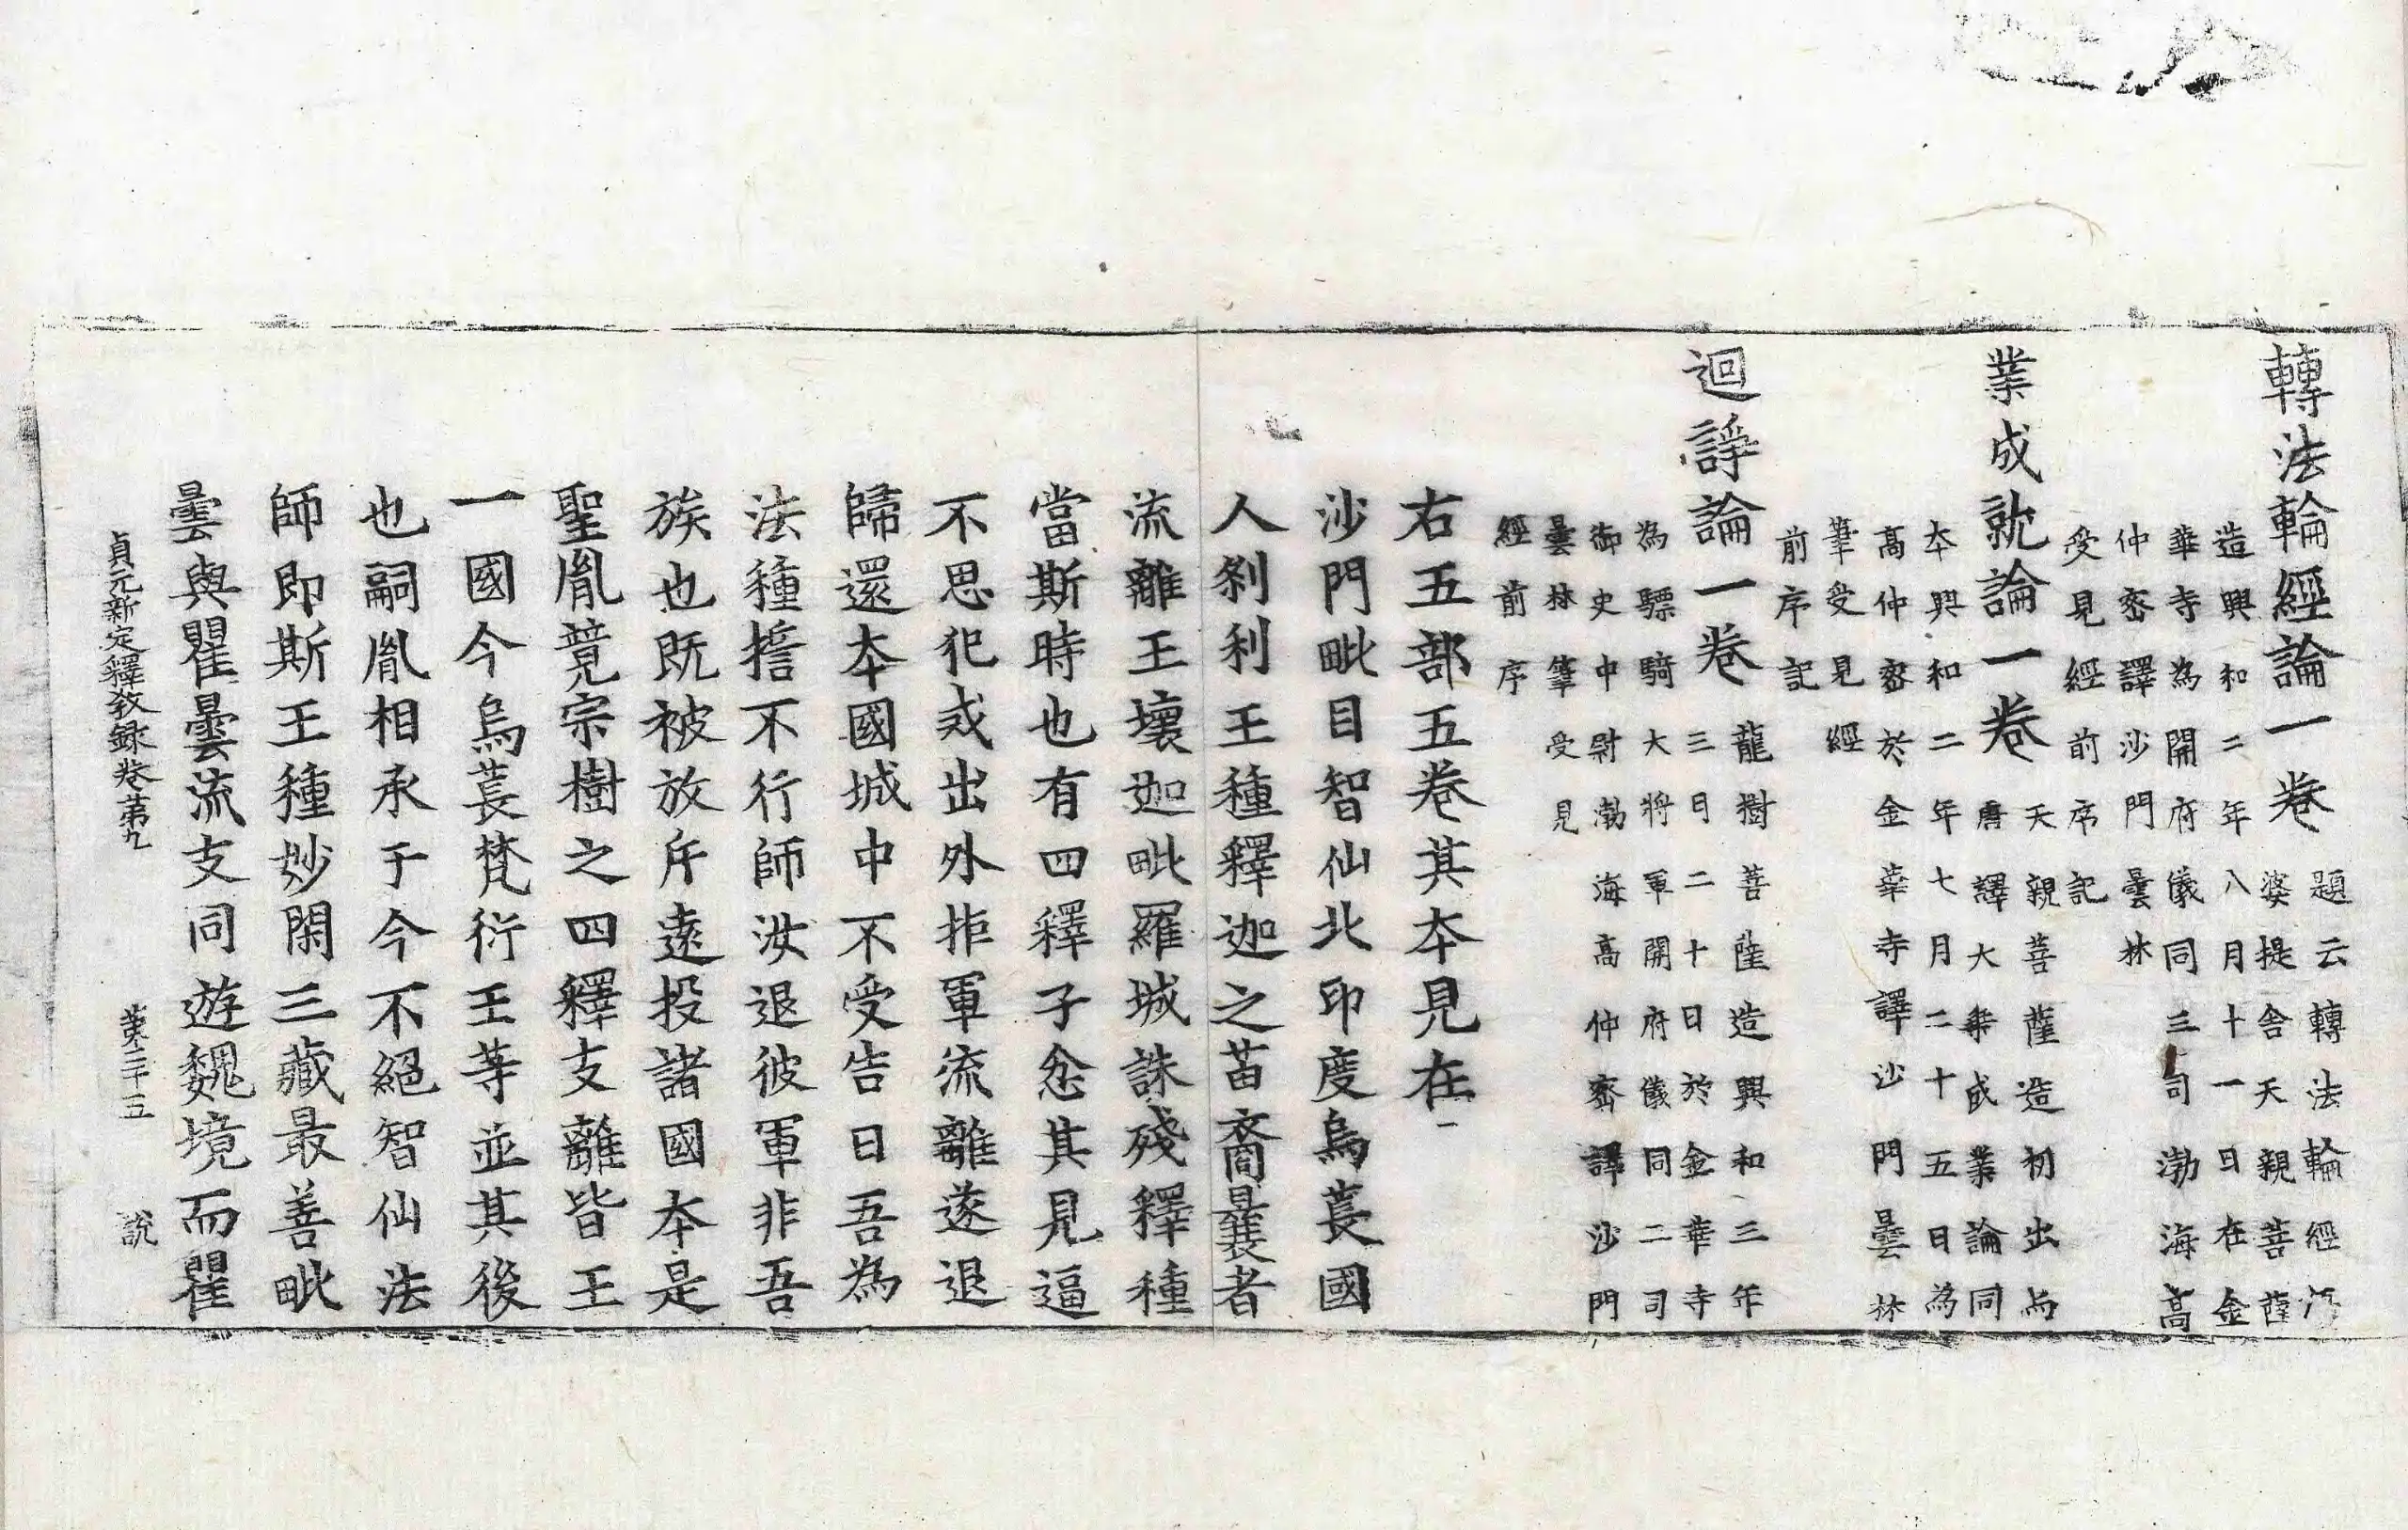 轉法輪經論一卷
題云轉法輪經
婆提舍天親菩薩
造興和二年八月十一日在金
華寺為開府儀同三司渤海高
仲密譯沙門曇林
受見經前序記
業成就論一卷
天親菩薩造初出與
唐譯大乘成業論同
本興和二年七月二十五日為
高仲密於金華寺譯沙門曇林
筆受見經
前序記
迴諍論一卷
龍樹菩薩造興和三年
三日二十日於金華寺
為驃騎大將軍開府儀同二司
御史中尉渤海高仲密譯沙門
曇林筆受見
經前序
右五部五卷其本見在
沙門毗目智仙北印度烏萇國
人剎利王種釋迦之苗裔曩者
流離王壞迦毗羅城誅殘釋種
當斯時也有四釋子忿其見逼
不思犯戒出外拒軍流離遂退
歸還本國城中不受告曰吾為
法種擔不行師汝退彼軍非吾
族也既被放斥遠投諸國本是
聖胤競宗樹之四釋支離皆王
一國今烏萇梵衍王等並其後
也嗣胤相承于今不絕智仙法
師即斯王種妙閑三藏最善毗
曇與瞿曇流支同遊魏境而瞿
貞元新定釋教錄卷第九 第二十五 說